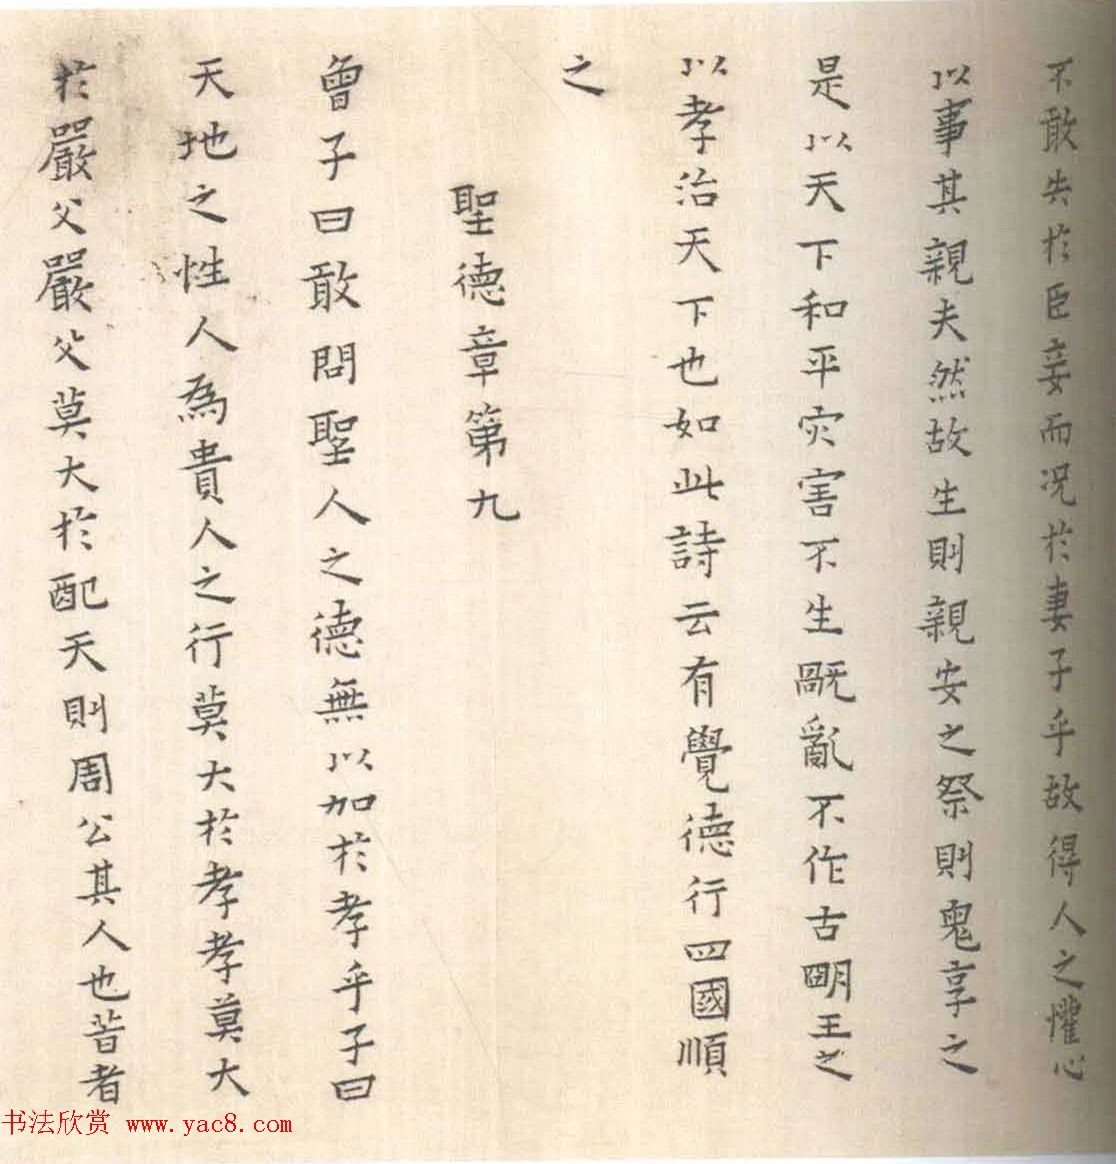 不敢失於臣妾而况於妻子乎故得人之懽心
以事其親夫然故生則親安之祭則鬼享之
是以天下和平灾害不生旤亂不作古朙王之
以孝治天下也如此詩云有覺德行四國順
之
聖德章第九
曾子曰敢問聖人之德無以加於孝乎子曰
天地之性人為貴人之行莫大於孝孝莫大
於嚴父嚴父莫大於配天則周公其人也昔者
书法欣赏 www.yac8.com